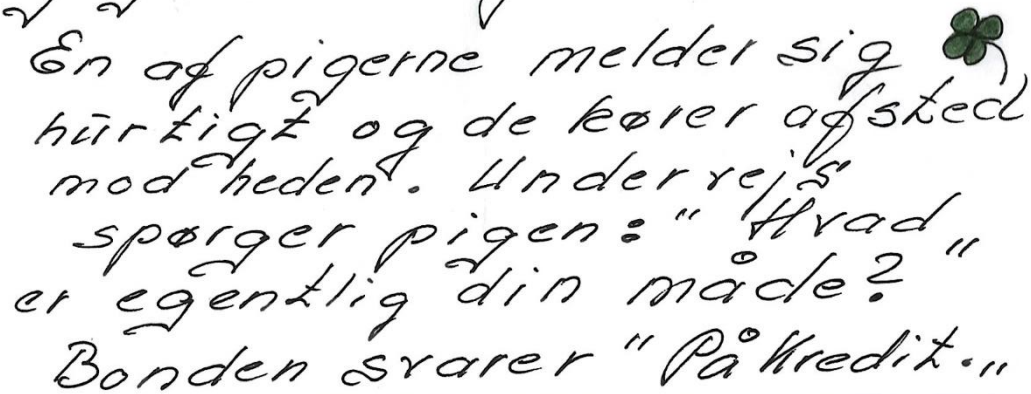 En af pigerne melder sig
hurtigt og de kører afsted
mod heden. Undervejs
spørger pigen: "Hvad
er egentlig din måde?"
Bonden svarer "På Kredit."